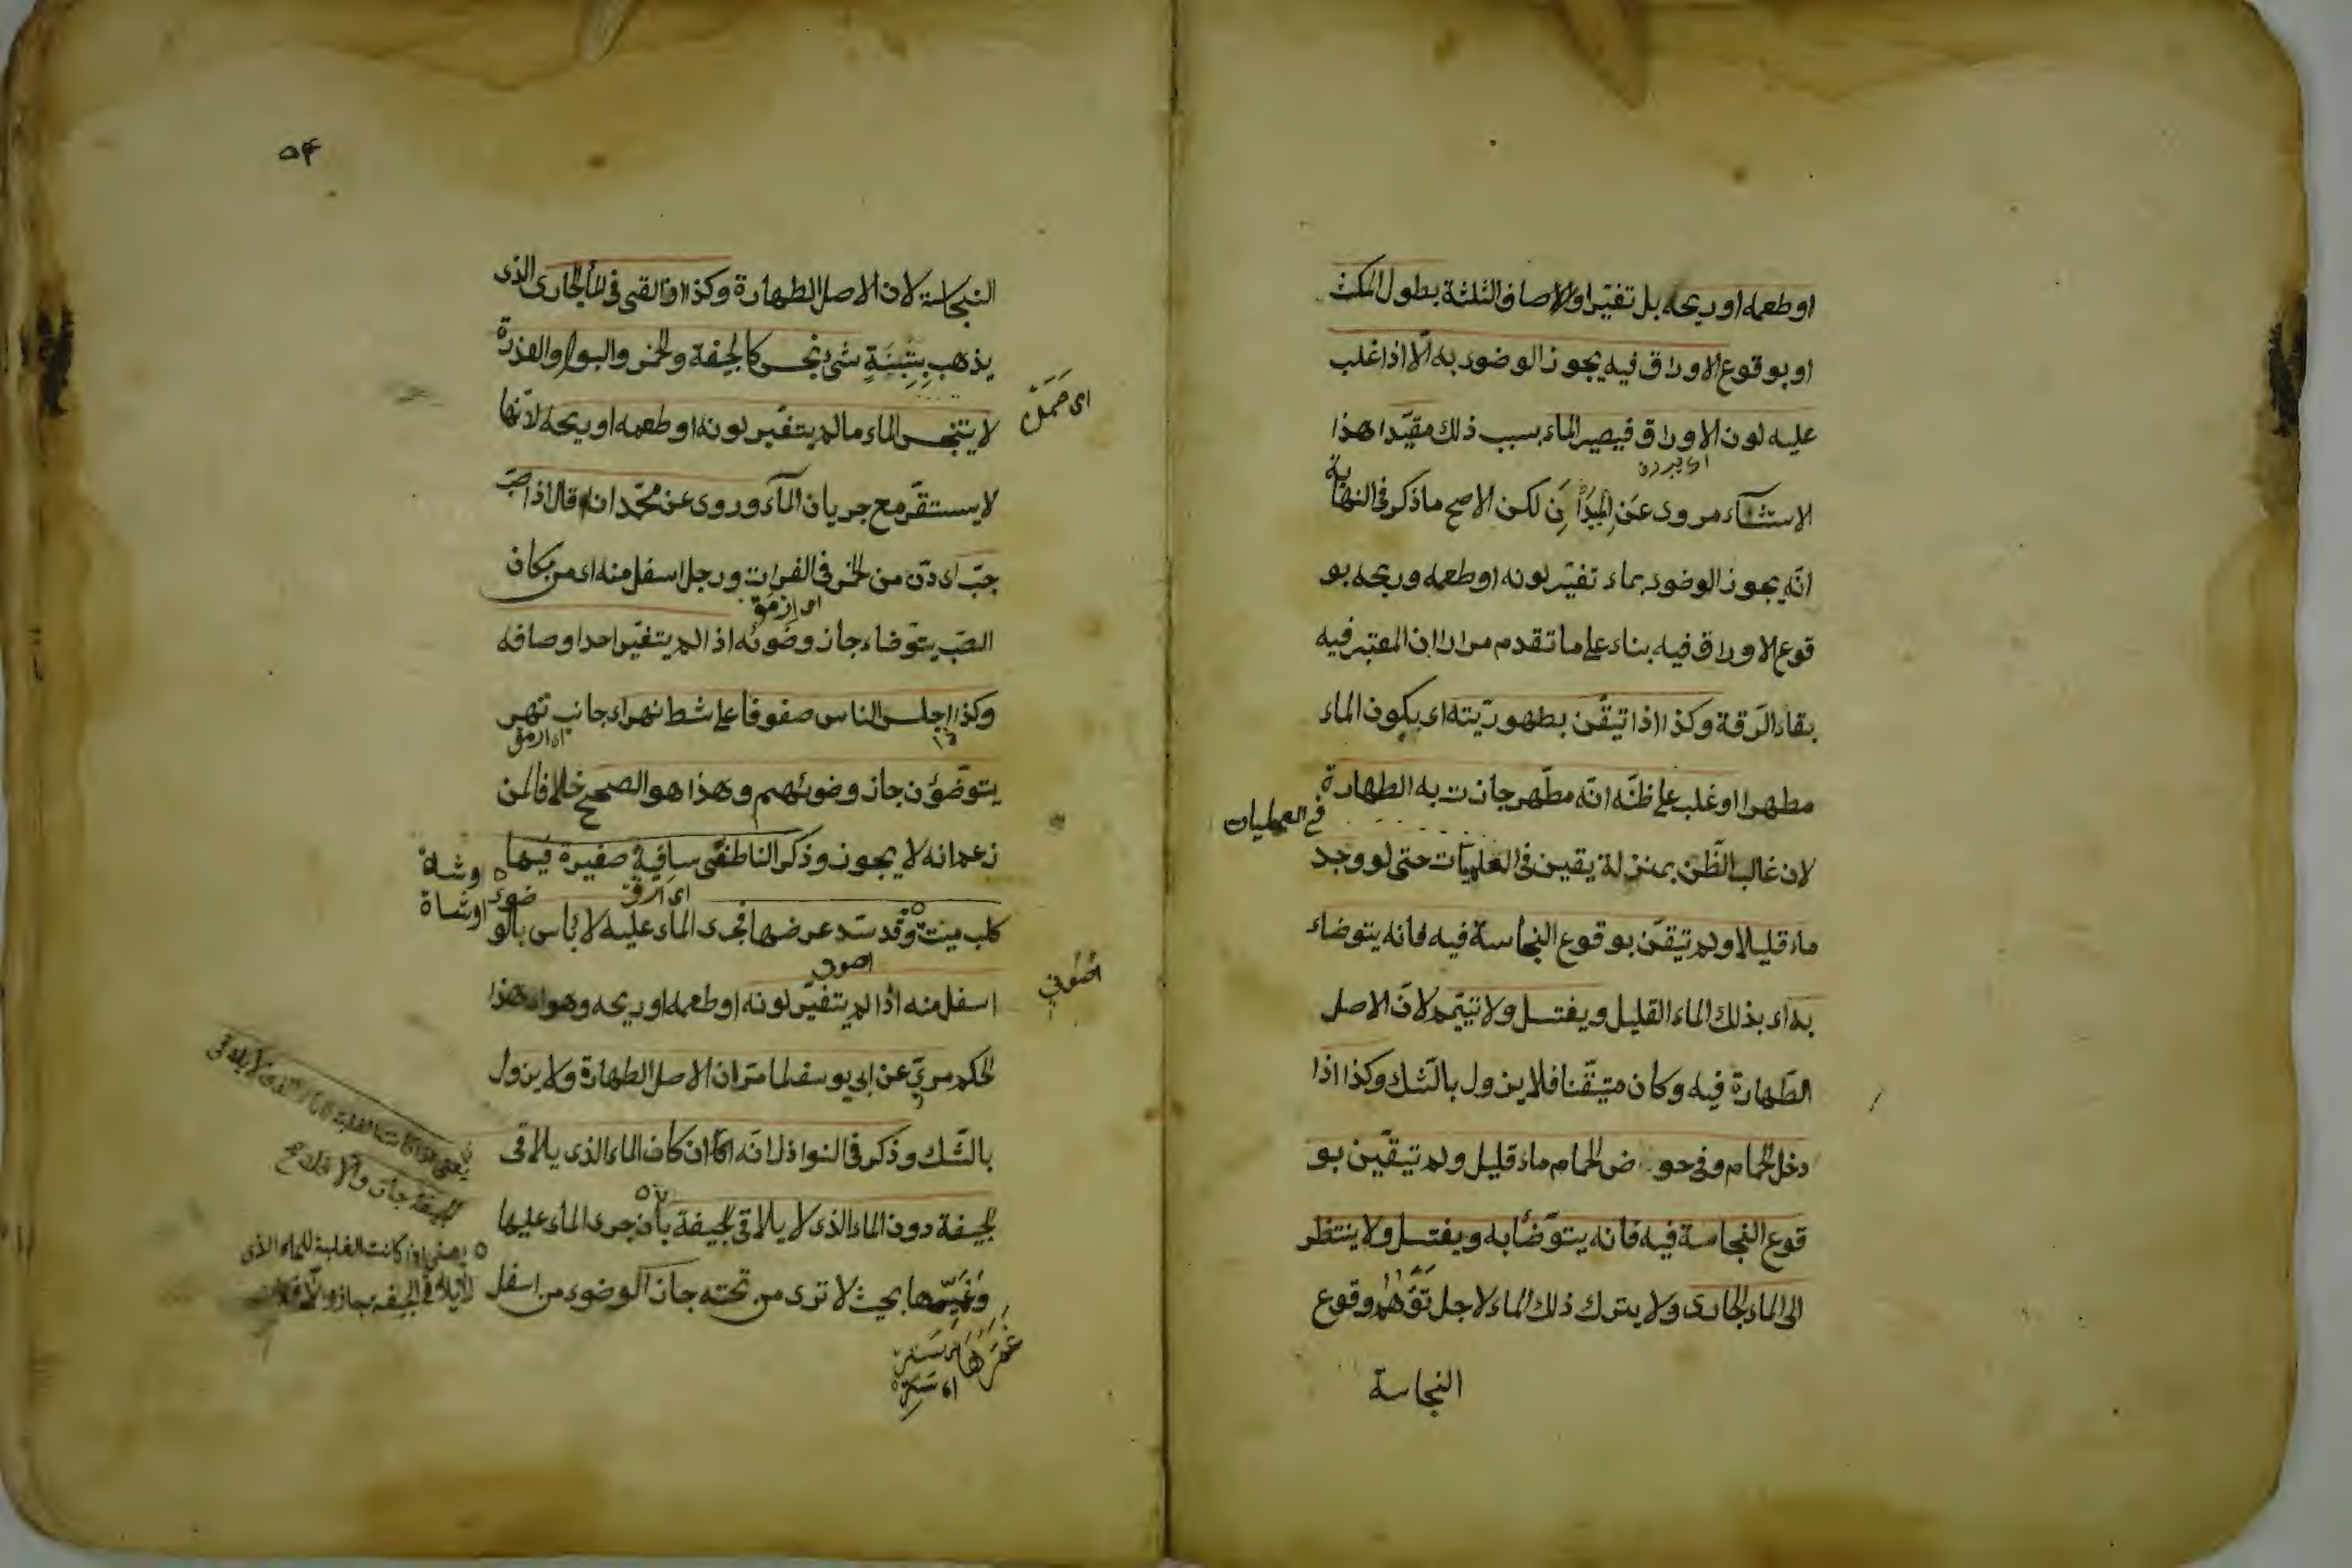 او طعمه او ريحه بل تغيّر او الاصاف الثلثة بطول المكث
او بوقوع الاوراق فيه يجوز الوضوء به الّا اذا غلب
عليه لون الاوراق فيصير الماء بسبب ذلك مقيّدا هذا
الاستثناء مروى عن لكن الاصح ما ذكر فى النهاية
انّه يجوز الوضوء بماء تغيّر لونه او طعمه وريحه بو
قوع الاوراق فيه بناء على ما تقدم مرارا ان المعتبر فيه
بقاء الرّقة وكذا اذا تيقّن بطهوريّته اى يكون الماء
مطهرا او غلب على ظنّه انّه مطّهر جازت به الطهارة
فى العمليات
لان غالب الظّن بمنزلة يقين فى العلميّات حتى لو وجد
ماء قليلا ولم تيقّن بوقوع النجاسة فيه فانه يتوضاء
به اى بذلك الماء القليل ويغتسل ولا تيّمم لانّ الاصل
الطّهارة فيه وكان متيقّنا فلا يزول بالشّك وكذا اذا
دخل الحمام وفى حو ض الحمام ماء قليل ولم تيقّين بو
قوع النجاسة فيه فانه يتوّضأ به ويغتسل ولا ينتظر
الى الماء الجارى ولا يترك ذلك الماء لاجل توّهم وقوع
النجاسة
٥٤
النجاسة لان الاصل الطهارة وكذا اذا القى فى الماء الجارى الذى
يذهب بتبنة شئ نجس كالجيفة والخمر والبول والعذرة
لا يتنجس الماء ما لم يتغيّر لونه او طعمه او ريحه لانّها
لا يستقرّ مع جريان الماء وروى عن محمّد انه قال اذا صبّ
جبّ اى دنّ من الخمر فى الفرات ورجل اسفل منه اى من مكان
الصّب يتوّضاء جاز وضوئه اذا لم يتغيّر احد اوصافه
وكذا اجلس الناس صفوفا على شط نهر اى جانب نهر
يتوضّؤن جاز وضوئهم وهذا هو الصحيح خلافا لمن
زعم انه لا يجوز وذكر الناطفى ساقية صغيرة فيها
كلب ميت وقد سّد عرضها فجرى الماء عليه لا بأس بالو
ضوء
اوشاة
اسفل منه اذا لم يتغيّر لونه او طعمه او ريحه وهو اى هذا
الحكم مرىّ عن ابى يوسف لما مرّ ان الاصل الطهارة ولا يزول
بالشّك وذكر فى النوازل انّه ان كان الماء الذى يلاقى
الجيفة دون الماء الذى لا يلاقى الجيفة بان جرى الماء عليها
بحيث لا ترى من تحته جاز الوضوء من اسفل
يعنى اذا كانت الغلبة للماء الذى
لا يلاقى الجيفة جاز والّا فلا